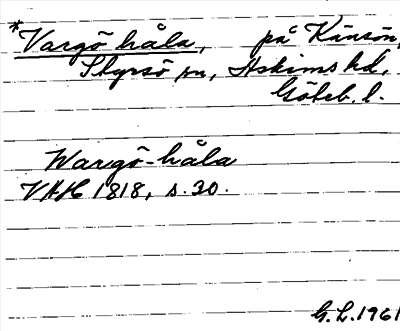 *Vargö håla, på Känsön,
Styrsö sn, Askims hd,
Göteb. l.
Wargö-håla
VAH 1818, s. 30.
G.L. 1961